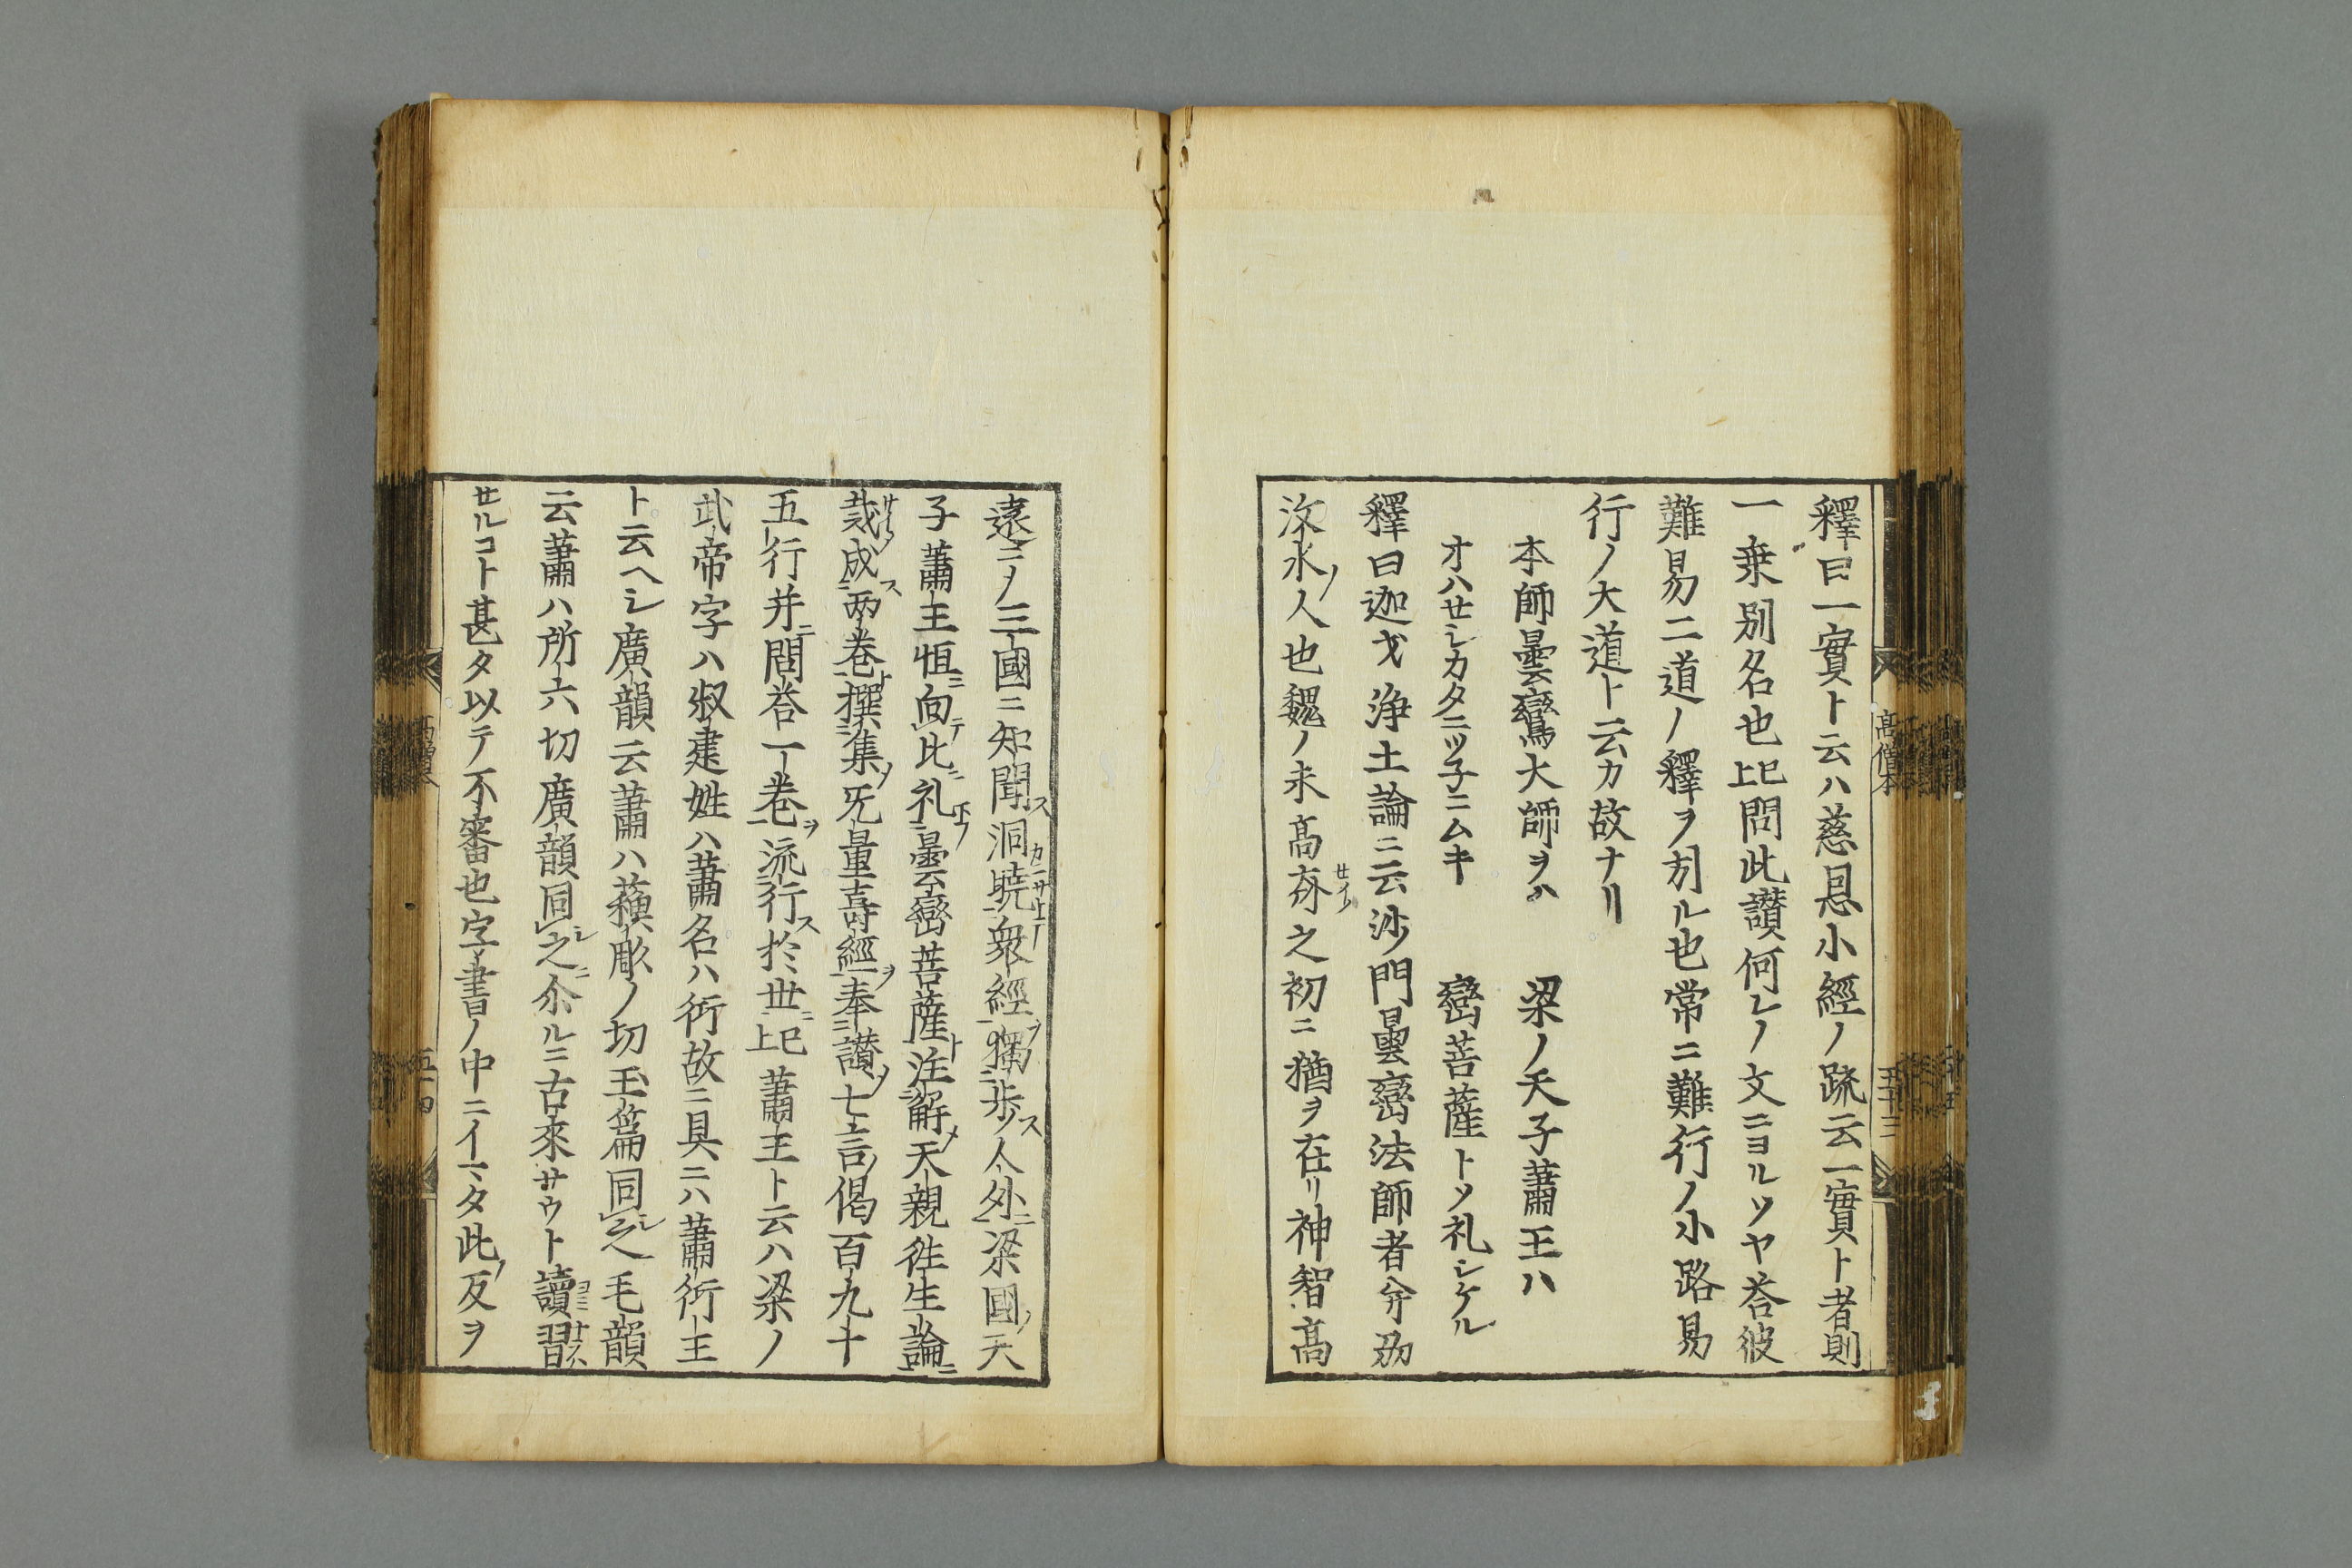 釋曰一實ト云ハ慈恩小經ノ疏云一實ト者則
一乗別名也上巳問此讃何レノ文ニヨルソヤ荅彼
難易二道ノ釋ヲ判ル也常ニ難行ノ小路易
行ノ大道ト云カ故ナリ
本師曇鸞大師ヲハ 梁ノ天子蕭王ハ
オハセシカタニツ子ニムキ 鸞菩薩トソ礼シケル
釋曰迦才浄土論ニ云沙門曇鸞法師者并州
汶水ノ人也魏ノ末高齊之初ニ猶ヲ在リ神智高
遠ニノ三國ニ知聞ス洞暁衆經ヲ獨歩ス人外ニ梁國ノ天
子蕭王恒ニ向テ北ニ礼曇鸞菩薩ト注觧天親徃生論ニ
裁成ス兩巻ト撰集ノ无量壽經ヲ奉讃ノ七言ノ偈百九十
五行并ニ問荅一巻ヲ流行ス於世ニ上巳蕭王ト云ハ梁ノ
武帝字ハ叔建姓ハ蕭名ハ衍故ニ具ニハ蕭衍王
ト云ヘシ廣韻云蕭ハ蘓彫ノ切玉篇同之毛韻
云蕭ハ所六切廣韻同之尒ルニ古來サウト讀習
サルコト甚タ以テ不審也字書ノ中ニイマタ此ノ反ヲ
高僧本
五十三